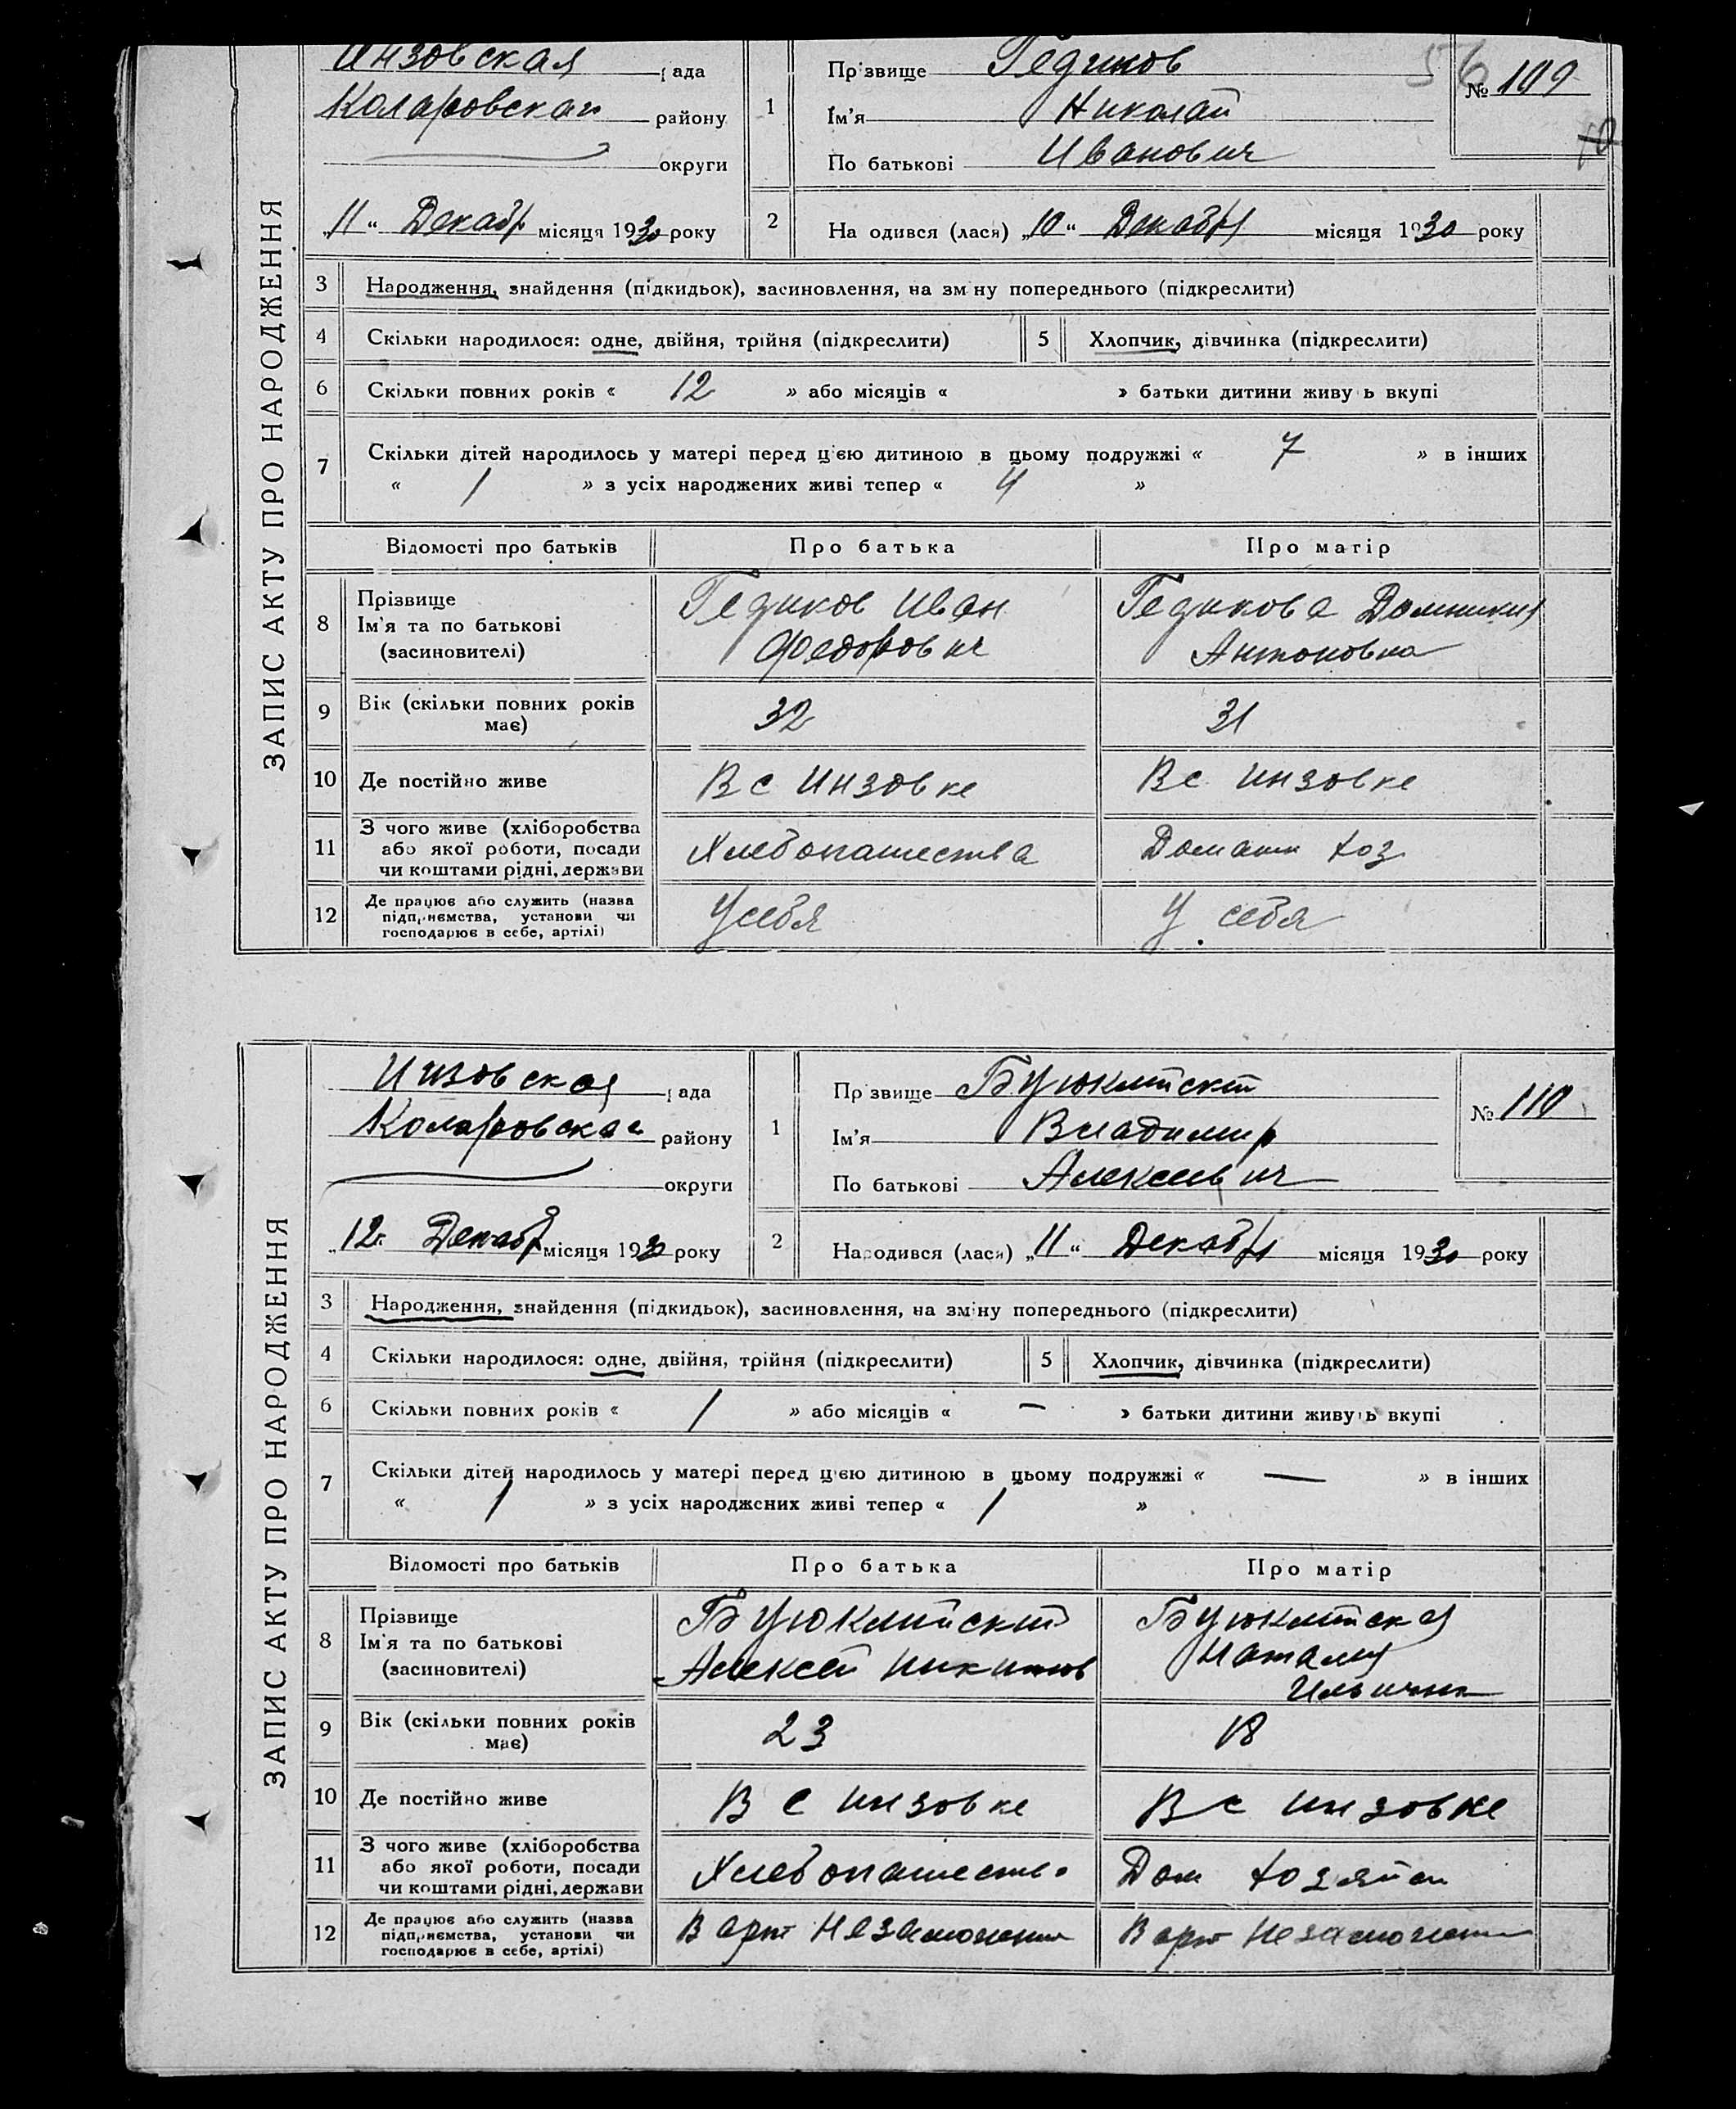 ЗАПИС АКТУ ПРО НАРОДЖЕННЯ
Инзовская рада
Коларовская району
округи
„11“ Декабр місяця 1930 року
1 Прізвище Гедиков
Ім'я Николай
По батькові Иванович
56
№ 109
2 На одився (лася) „10“ Декабря місяця 1930 року
3 Народження, знайдення (підкидьок), засиновлення, на зміну попереднього (підкреслити)
4 Скільки народилося: одне, двійня, трійня (підкреслити) 5 Хлопчик, дівчинка (підкреслити)
6 Скільки повних років « 12 » або місяців « » батьки дитини живуть вкупі
7 Скільки дітей народилось у матері перед цією дитиною в цьому подружжі « 7 » в інших
« 1 » з усіх народжених живі тепер « 4 »
Відомості про батьків Про батька Про матір
8 Прізвище Ім'я та по батькові (засиновителі) Гедиков Иван Федорович Гедикова Домникия Антоновна
9 Вік (скільки повних років має) 32 31
10 Де постійно живе В с Инзовке В с Инзовке
11 З чого живе (хліборобства або якої роботи, посади чи коштами рідні, держави Хлебопашества Домашн хоз
12 Де працює або служить (назва підприємства, установи чи господарює в себе, артілі) У себя У себя
ЗАПИС АКТУ ПРО НАРОДЖЕННЯ
Инзовская рада
Коларовская району
округи
„12“ Декабр місяця 1930 року
1 Прізвище Буюклийский
Ім'я Владимир
По батькові Алексеевич
№ 110
2 Народився (лася) „11“ Декабря місяця 1930 року
3 Народження, знайдення (підкидьок), засиновлення, на зміну попереднього (підкреслити)
4 Скільки народилося: одне, двійня, трійня (підкреслити) 5 Хлопчик, дівчинка (підкреслити)
6 Скільки повних років « 1 » або місяців « — » батьки дитини живуть вкупі
7 Скільки дітей народилось у матері перед цією дитиною в цьому подружжі « — » в інших
« 1 » з усіх народжених живі тепер « 1 »
Відомості про батьків Про батька Про матір
8 Прізвище Ім'я та по батькові (засиновителі) Буюклийский Алексей Никитов Буюклийская Наталия Ильична
9 Вік (скільки повних років має) 23 18
10 Де постійно живе В с Инзовке В с Инзовке
11 З чого живе (хліборобства або якої роботи, посади чи коштами рідні, держави Хлебопашество Дом хозяйси
12 Де працює або служить (назва підприємства, установи чи господарює в себе, артілі) В арт Незаможник В арт Незаможник